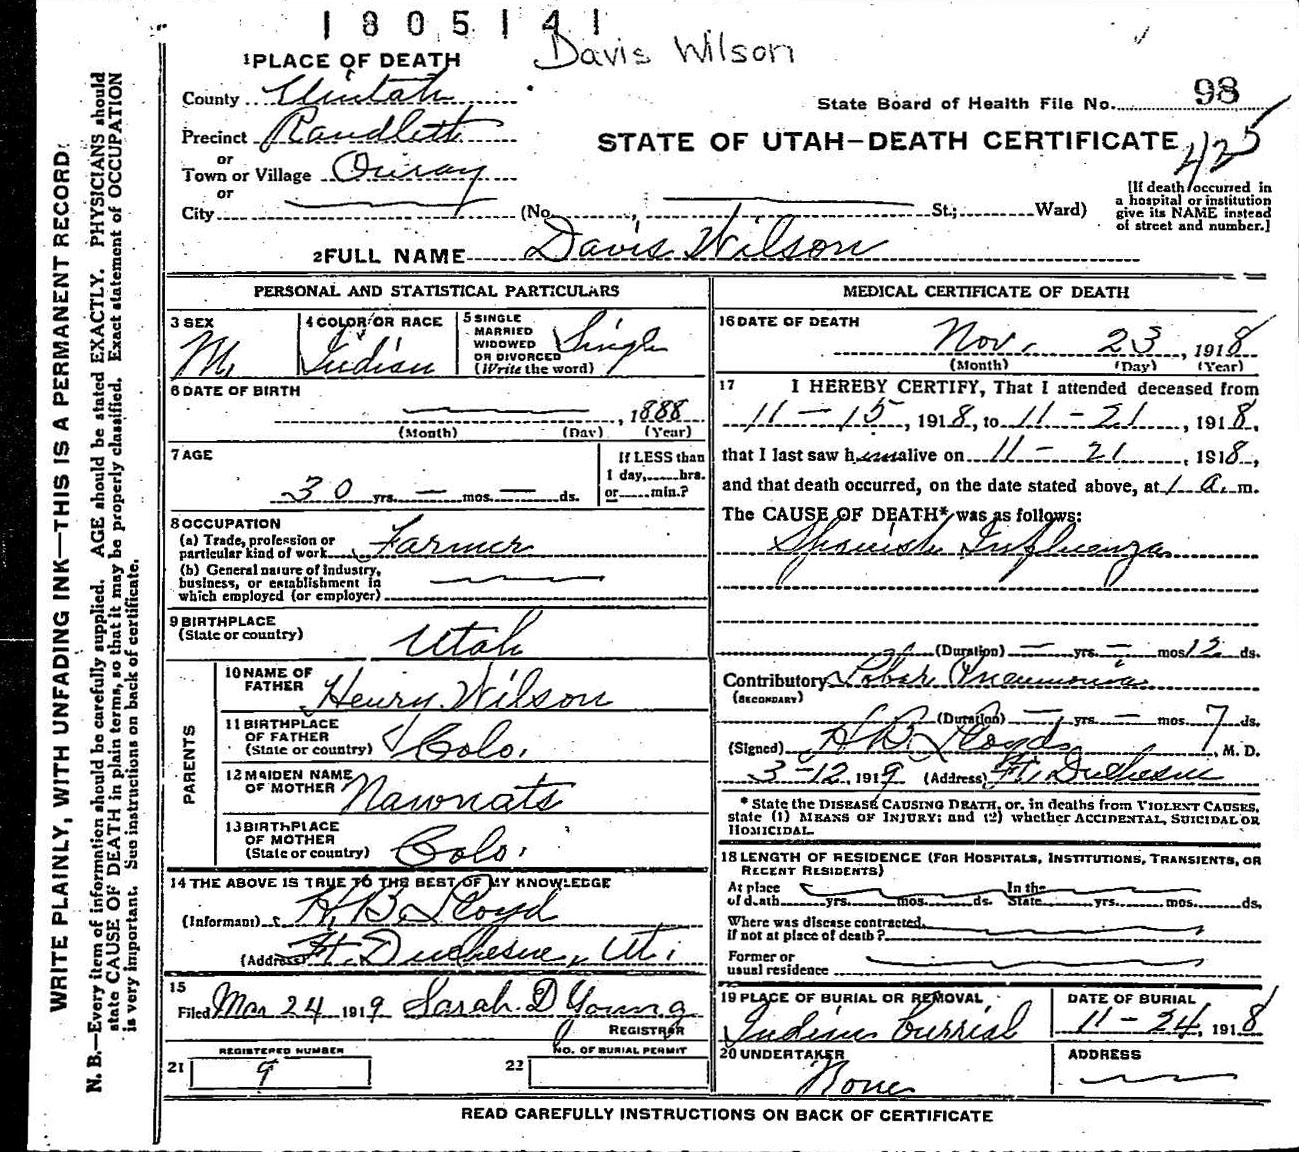 1805141
Davis Wilson
1 PLACE OF DEATH
County Uintah
State Board of Health File No. 98
Precinct Randlett
STATE OF UTAH—DEATH CERTIFICATE
425
or
Town or Village Ouray
or
City (No. , St.; Ward)
[If death occurred in
a hospital or institution
give its NAME instead
of street and number.]
2 FULL NAME Davis Wilson
PERSONAL AND STATISTICAL PARTICULARS
3 SEX
M.
4 COLOR OR RACE
Indian
5 SINGLE
MARRIED
WIDOWED
OR DIVORCED
(Write the word)
Single
6 DATE OF BIRTH
, 1888
(Month) (Day) (Year)
7 AGE
30 yrs. — mos. — ds.
If LESS than
1 day, hrs.
or min.?
8 OCCUPATION
(a) Trade, profession or
particular kind of work Farmer
(b) General nature of industry,
business, or establishment in
which employed (or employer)
9 BIRTHPLACE
(State or country)
Utah
PARENTS
10 NAME OF
FATHER Henry Wilson
11 BIRTHPLACE
OF FATHER
(State or country) Colo.
12 MAIDEN NAME
OF MOTHER Nawnats
13 BIRTHPLACE
OF MOTHER
(State or country) Colo.
14 THE ABOVE IS TRUE TO THE BEST OF MY KNOWLEDGE
(Informant) H. B. Lloyd
(Address) Ft. Duchesne, Ut.
15
Filed Mar 24 1919 Sarah D Young
REGISTRAR
REGISTERED NUMBER
21 9
NO. OF BURIAL PERMIT
22
MEDICAL CERTIFICATE OF DEATH
16 DATE OF DEATH
Nov. 23, 1918
(Month) (Day) (Year)
17 I HEREBY CERTIFY, That I attended deceased from
11—15, 1918, to 11—21, 1918,
that I last saw him alive on 11—21, 1918,
and that death occurred, on the date stated above, at 1 a. m.
The CAUSE OF DEATH* was as follows:
Spanish Influenza
(Duration) — yrs. — mos 12 ds.
Contributory Lobar Pneumonia
(SECONDARY)
(Duration) — yrs. — mos. 7 ds.
(Signed) H. B. Lloyd, M. D.
3-12, 1919 (Address) Ft. Duchesne
* State the DISEASE CAUSING DEATH, or, in deaths from VIOLENT CAUSES,
state (1) MEANS OF INJURY; and (2) whether ACCIDENTAL, SUICIDAL OR
HOMICIDAL.
18 LENGTH OF RESIDENCE (FOR HOSPITALS, INSTITUTIONS, TRANSIENTS, OR
RECENT RESIDENTS)
At place In the
of death yrs. mos. ds. State yrs. mos. ds.
Where was disease contracted,
if not at place of death?
Former or
usual residence
19 PLACE OF BURIAL OR REMOVAL
Indian burrial
DATE OF BURIAL
11-24, 1918
20 UNDERTAKER
None
ADDRESS
READ CAREFULLY INSTRUCTIONS ON BACK OF CERTIFICATE
WRITE PLAINLY, WITH UNFADING INK—THIS IS A PERMANENT RECORD
N. B.—Every item of information should be carefully supplied. AGE should be stated EXACTLY. PHYSICIANS should
state CAUSE OF DEATH in plain terms, so that it may be properly classified. Exact statement of OCCUPATION
is very important. See instructions on back of certificate.